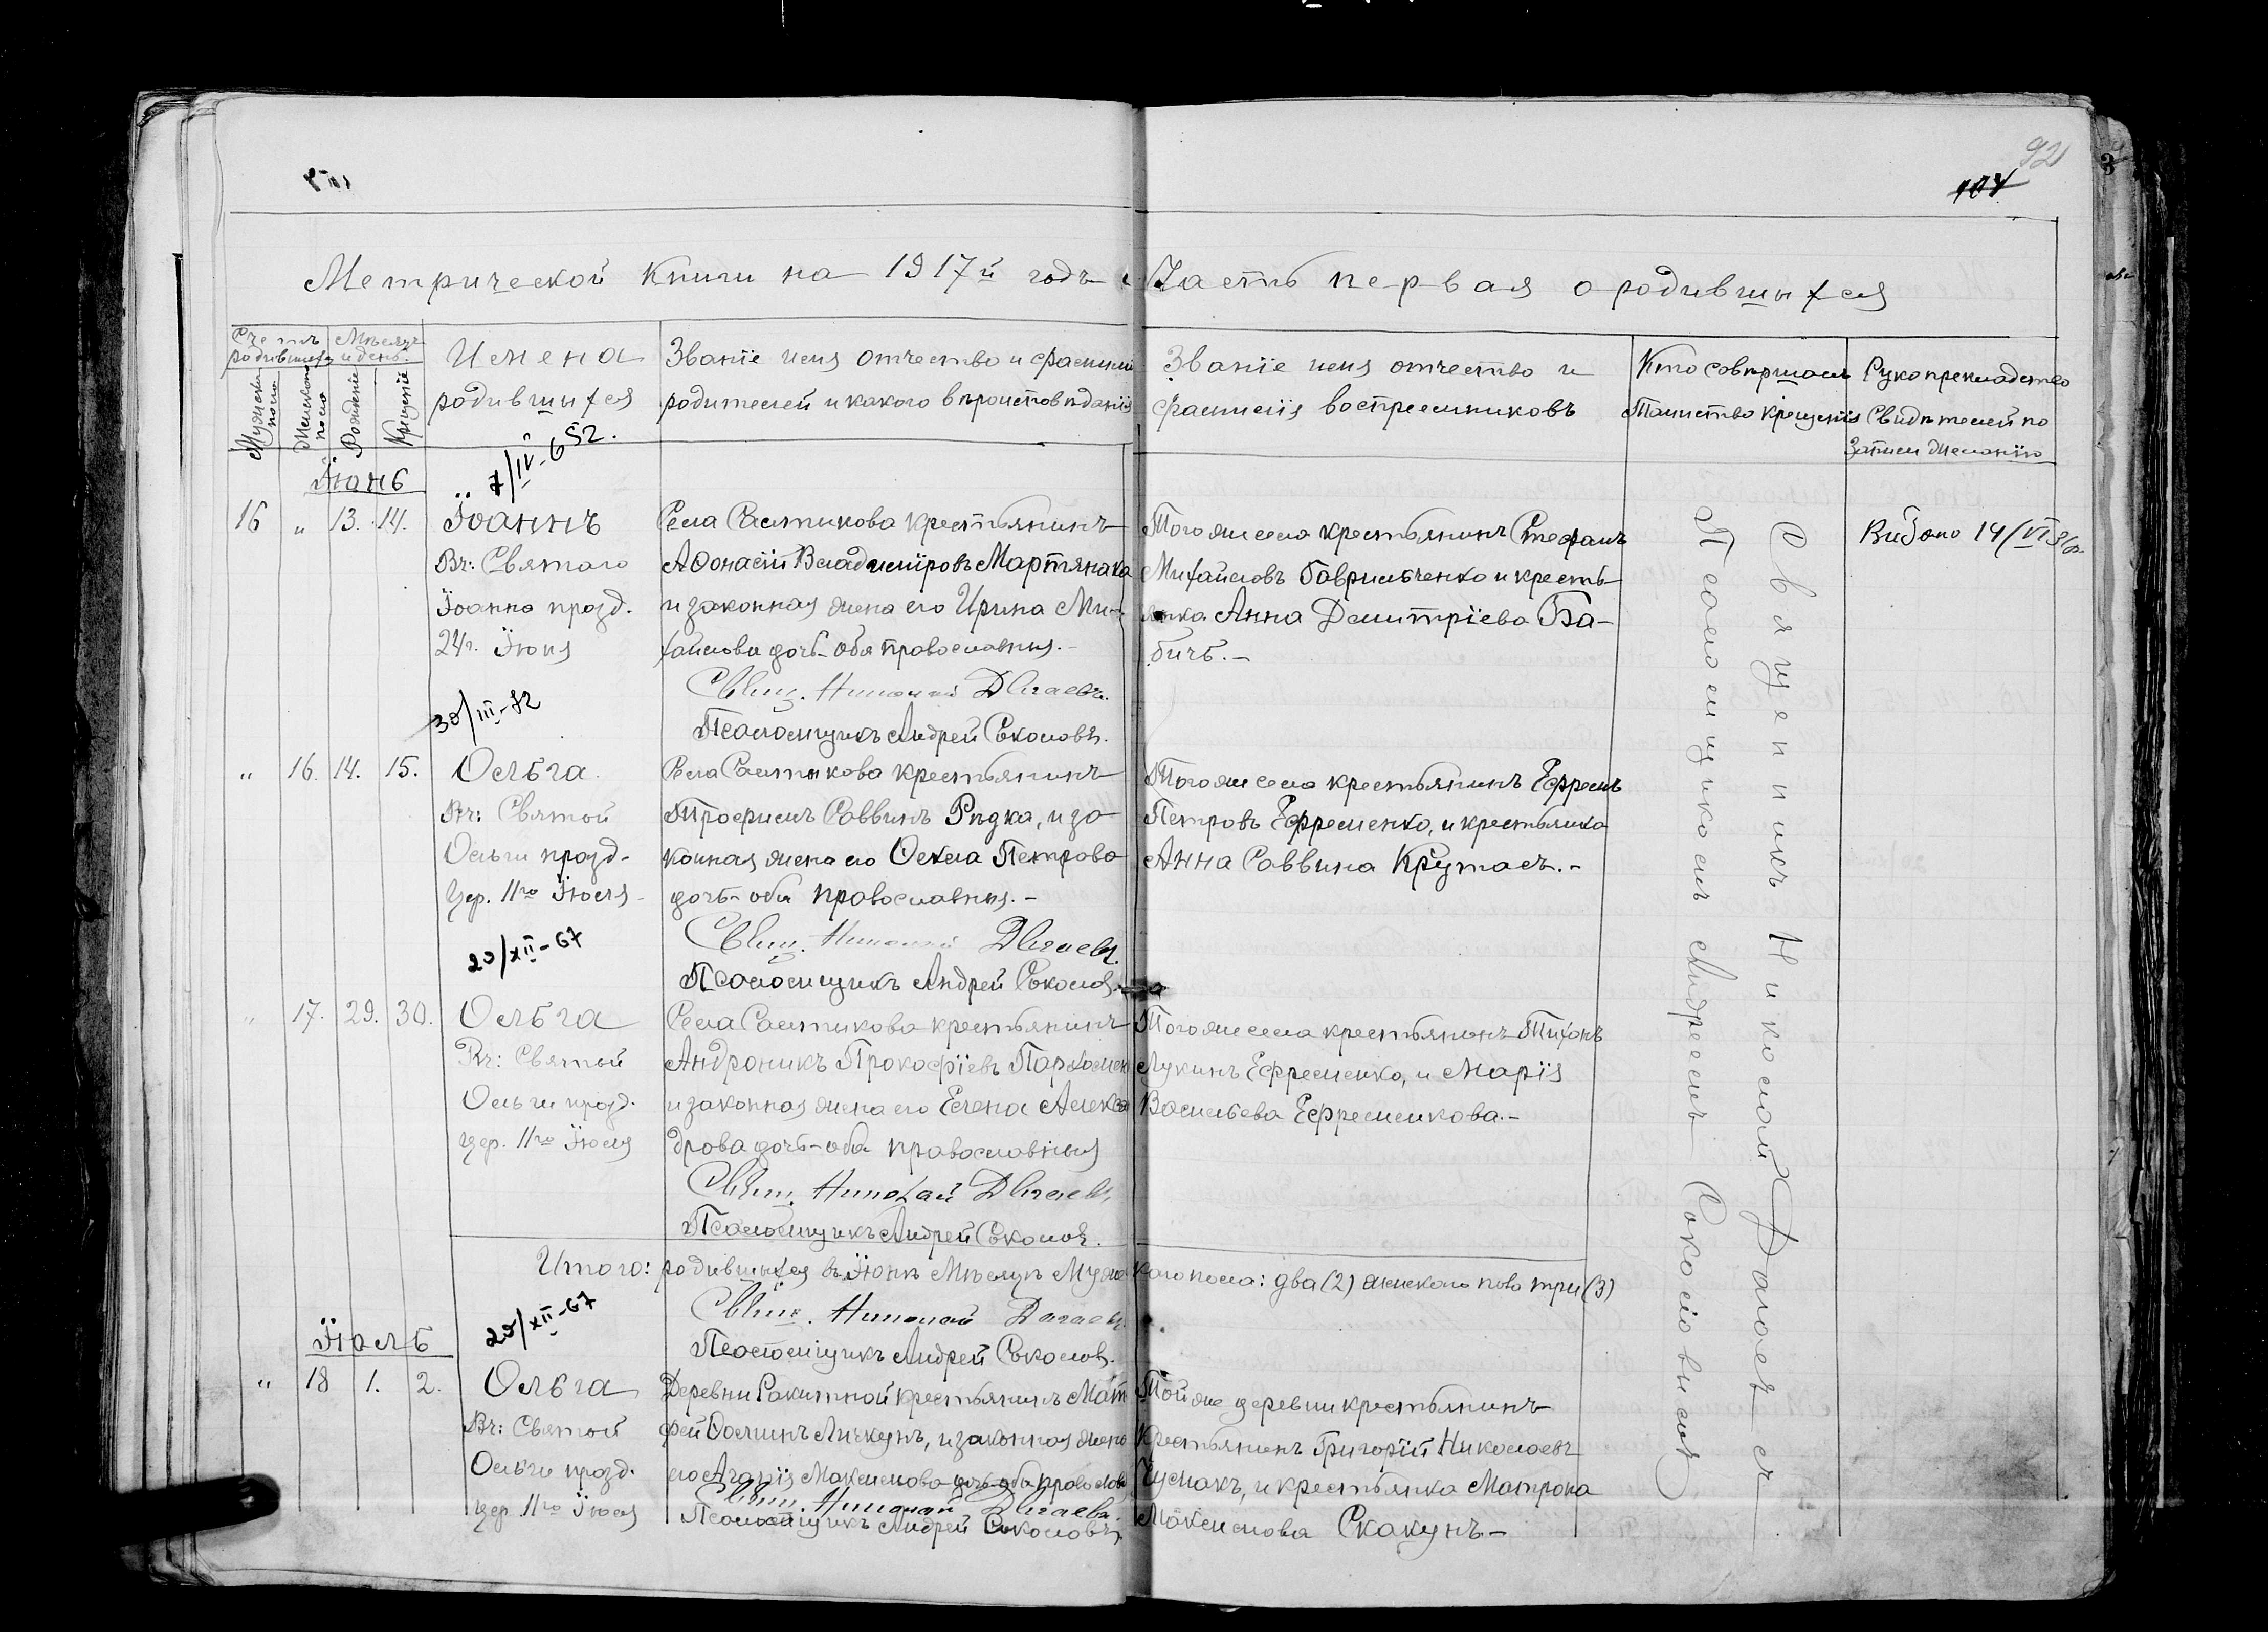 92
107
Метрической книги на 1917й годъ Часть первая о родившихся
Счетъ родившихся
Мѣсяцъ и день.
Мужеска пола
Женска пола
Рожденіе
Крещеніе
Имена
родившихся
Званіе имя отчество и фамилія
родителей и какого вѣроисповѣданія
Званіе имя отчество и
фамилія воспреемниковъ
Кто совершалъ
Таинство крещенія
Рукоприкладство
Свидѣтелей по
Записи желанію
Іюнь
7/IV-652.
16 " 13. 14. Іоаннъ
Въ: Святого
Іоанна празд.
24г. Іюня
Села Салтикова крестьянинъ
Афонасій Владиміровъ Мартянака
и законная жена его Ирина Ми-
хайлова дочь-оба православныя.-
Свящ. Николай Двгаевъ.
Псаломщикъ Андрей Соколовъ.
Того же села крестьянинъ Стефанъ
Михайловъ Гаврильченко и кресть-
янка Анна Демитріева Ба-
бичь.-
Видано 14/VI
30/III-82
" 16. 14. 15. Ольга.
Въ: Святой
Ольги празд.
цер. 11го Іюля
Села Салтыкова крестьянинъ
Трофимъ Саввинъ Рѣдка, и за-
конная жена его Оекла Петрова
дочь-оба православныя.-
Свящ. Николай Двгаевъ.
Псаломщикъ Андрей Соколов.
Того же села крестьянинъ Ефремъ
Петровъ Ефременко, и крестьянка
Анна Саввина Круталь.-
20/XII-67
" 17. 29. 30. Ольга
Въ: Святой
Ольги празд.
цер. 11го Іюля
Села Салтикова крестьянинъ
Андроникъ Прокофіевъ Пархомен
и законная жена его Елена Алекса
дрова дочь-оба православныя
Свящ. Николай Двгаевъ.
Псаломщикъ Андрей Соколов.
Того же села крестьянинъ Тихонъ
Лукинъ Ефременко, и Марія
Васильева Ефременкова.-
Итого: родившихся въ Іюнѣ Мѣсяцѣ Мужескаго пола: два (2) женскаго пола три (3)
Свящ. Николай Двгаевъ
Псаломщикъ Андрей Соколов.
20/XII-67
Іюль
" 18 1. 2. Ольга
Въ: Святой
Ольги празд.
цер. 11го Іюля
Деревни Ракитной крестьянинъ Мат
фей Фоминъ Личкунъ, и законная жена
его Агафія Максимова дочь-оба православ
Свящ. Николай Двгаевъ.
Псаломщикъ Андрей Соколовъ
Той же деревни крестьянинъ
Крестьянинъ Григорій Николаевъ
Чумакъ, и крестьянка Матрона
Максимова Скакунъ-
Священникъ Николай
Псаломщикомъ Андреемъ Соколовымъ